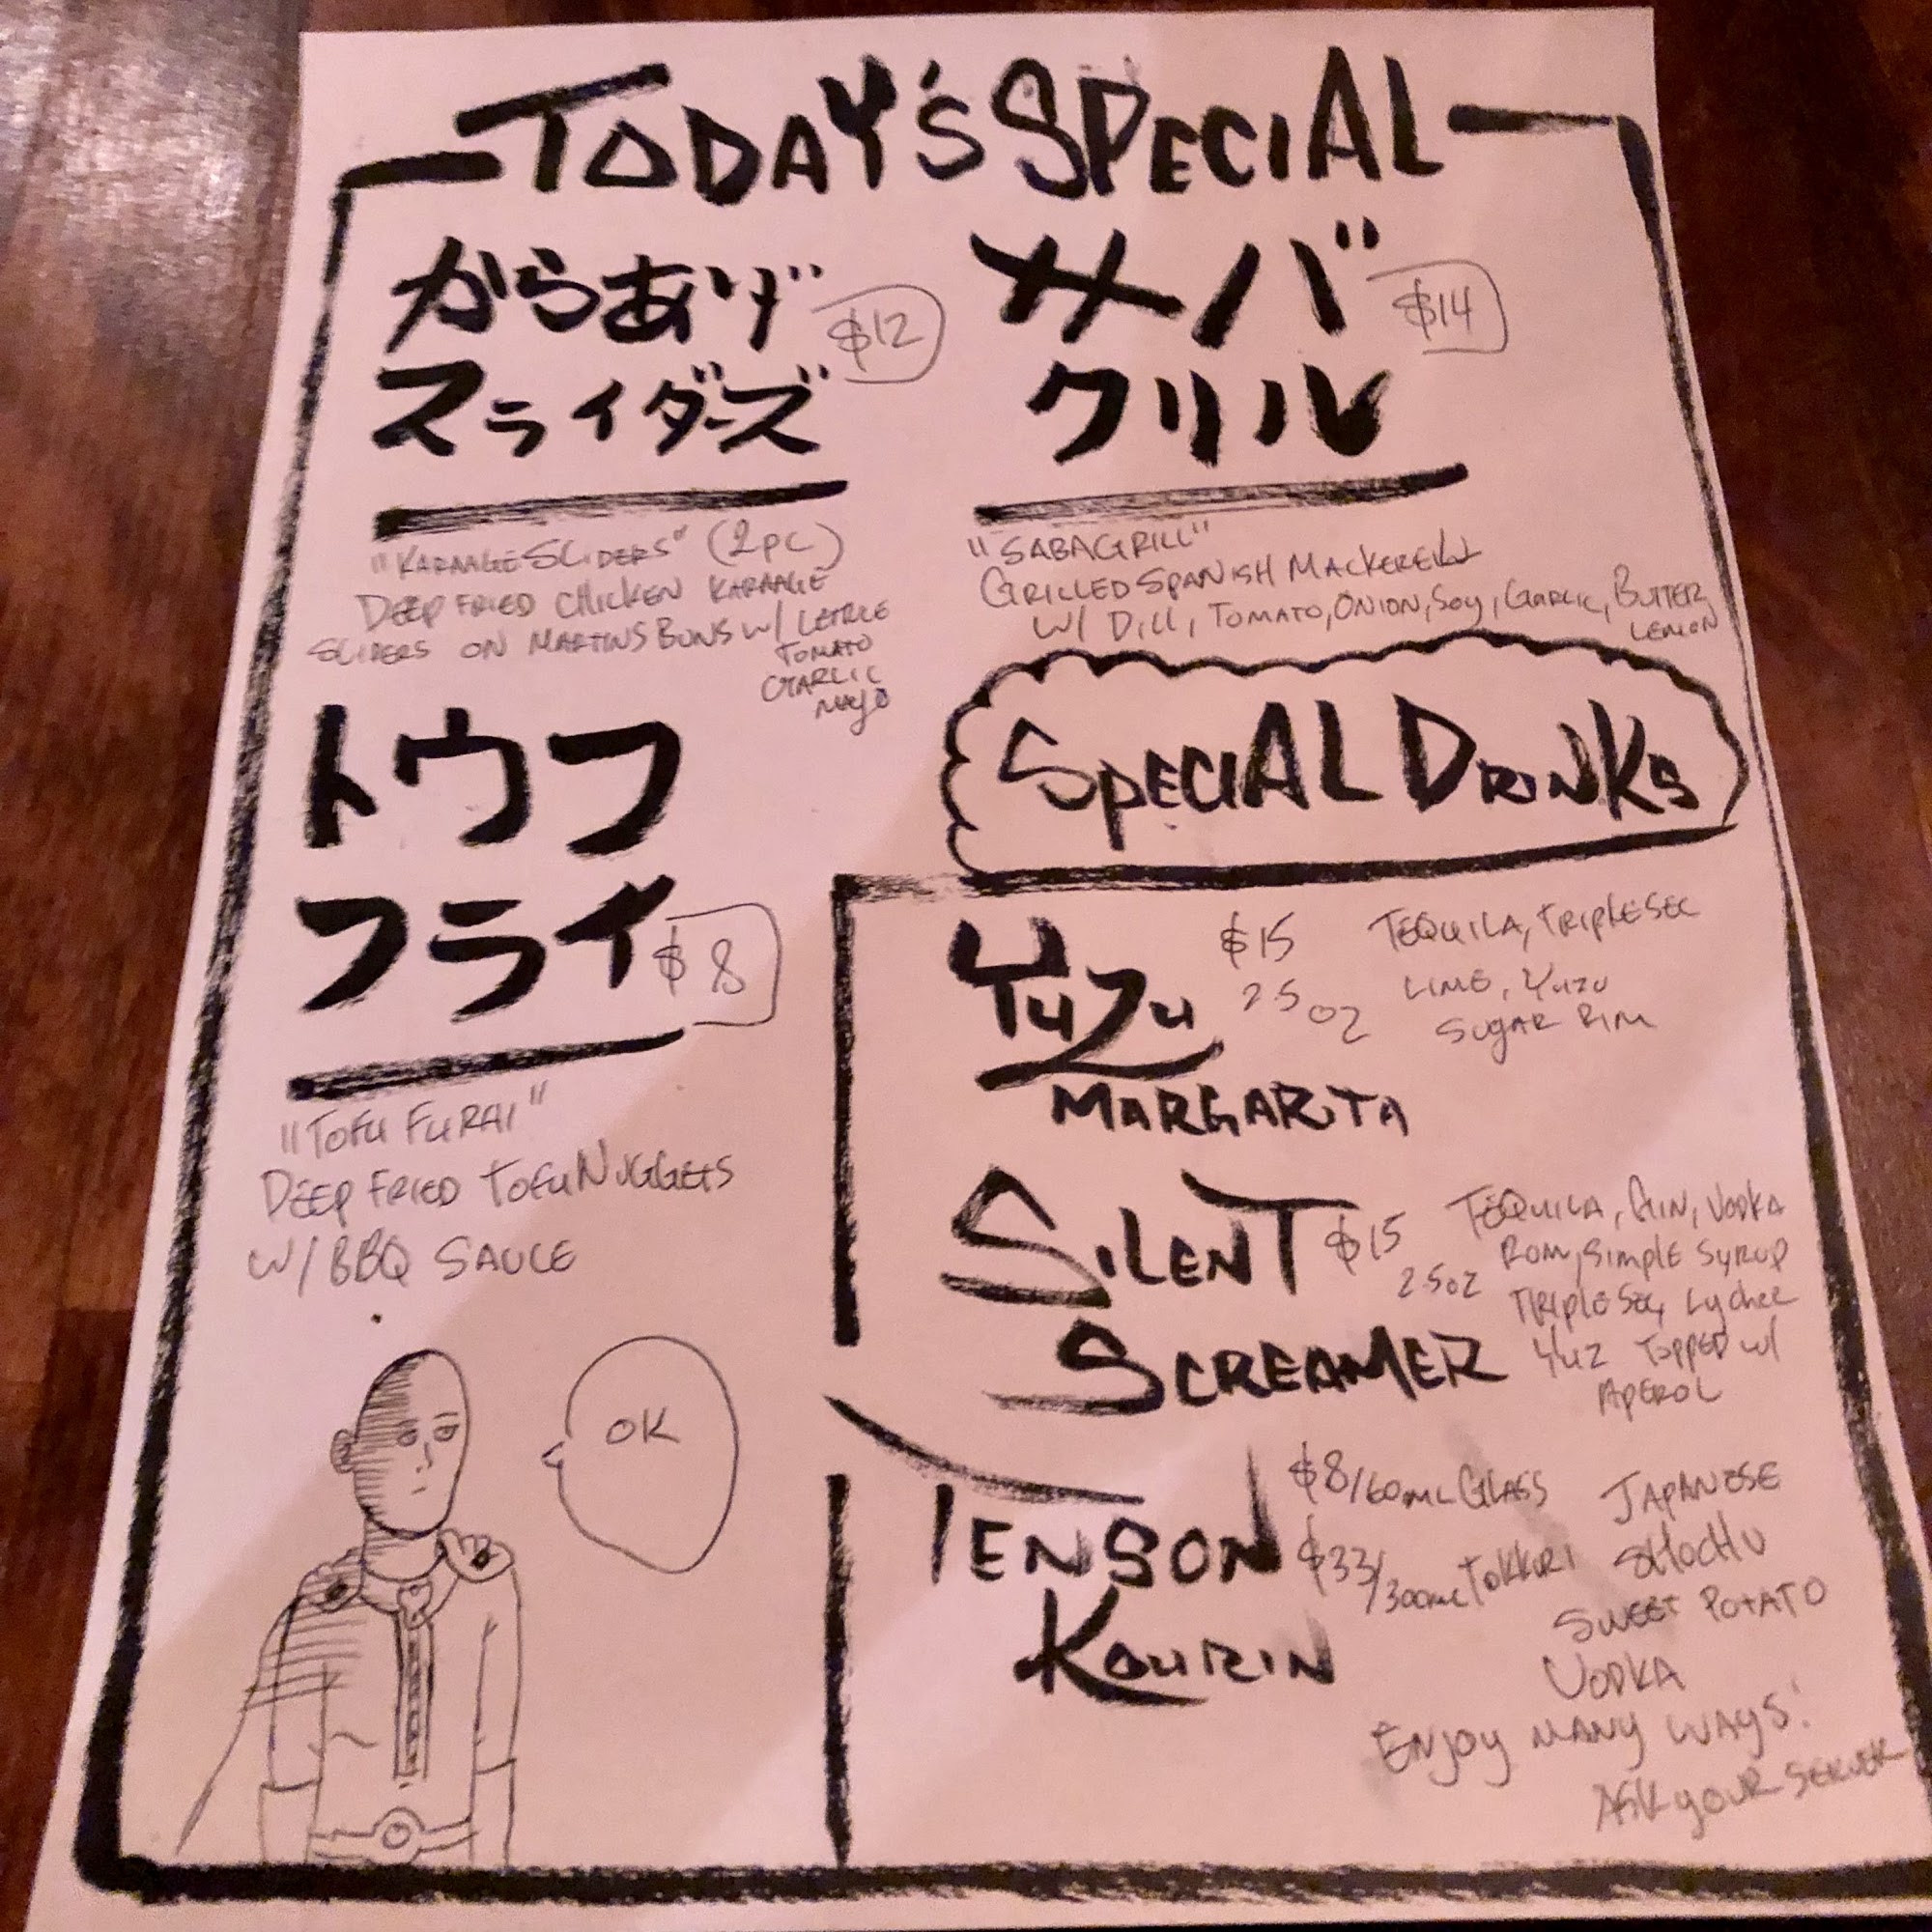 TODAY'S SPECIAL
からあげ $12
スライダーズ
"KARAAGE SLIDERS" (2PC)
DEEP FRIED CHICKEN KARAAGE
SLIDERS ON MARTINS BUNS W/ LETTUCE
TOMATO
GARLIC
MAYO
サバ $14
グリル
"SABA GRILL"
GRILLED SPANISH MACKEREL
W/ DILL, TOMATO, ONION, SOY, GARLIC, BUTTER
LEMON
トウフ
フライ $8
"TOFU FURAI"
DEEP FRIED TOFU NUGGETS
W/ BBQ SAUCE
OK
SPECIAL DRINKS
YUZU $15 TEQUILA, TRIPLE SEC
2.5 OZ LIME, YUZU
SUGAR RIM
MARGARITA
SILENT $15 TEQUILA, GIN, VODKA
2.5 OZ ROM, SIMPLE SYRUP
TRIPLE SEC, LYCHEE
SCREAMER YUZ TOPPED W/
APEROL
TENSON $8/60ML GLASS JAPANESE
$33/300ML TOKKURI SHOCHU
KOURIN SWEET POTATO
VODKA
ENJOY MANY WAYS!
ASK YOUR SERVER